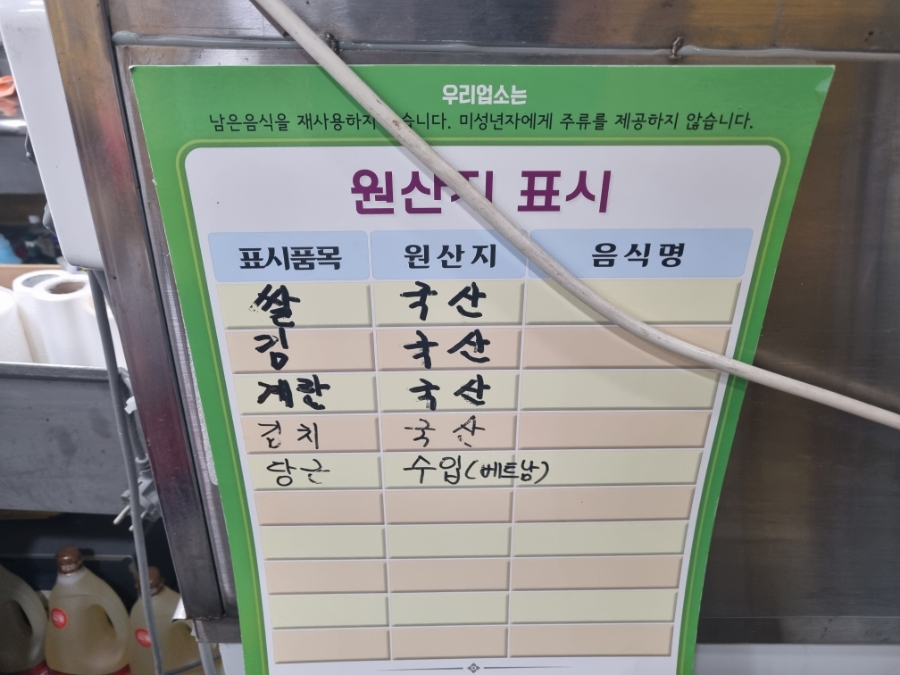 우리업소는
남은음식을 재사용하지 습니다. 미성년자에게 주류를 제공하지 않습니다.
원산지 표시
표시품목 원산지 음식명
쌀 국산
김 국산
계란 국산
국산
당근 수입(베트남)